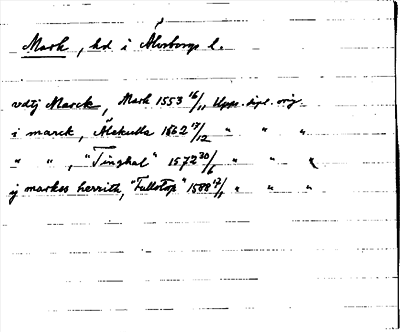 Mark, hd i Älvsborgs l.
vdtj Marck, Mark 1553 16/11 Upps. dipl. orig
i marck, Åsakulla 1562 17/12 " " "
" ", "Tinghal" 1572 30/6 " " "
ij markss herrith, "Fullstop" 1588 17/1 " " "